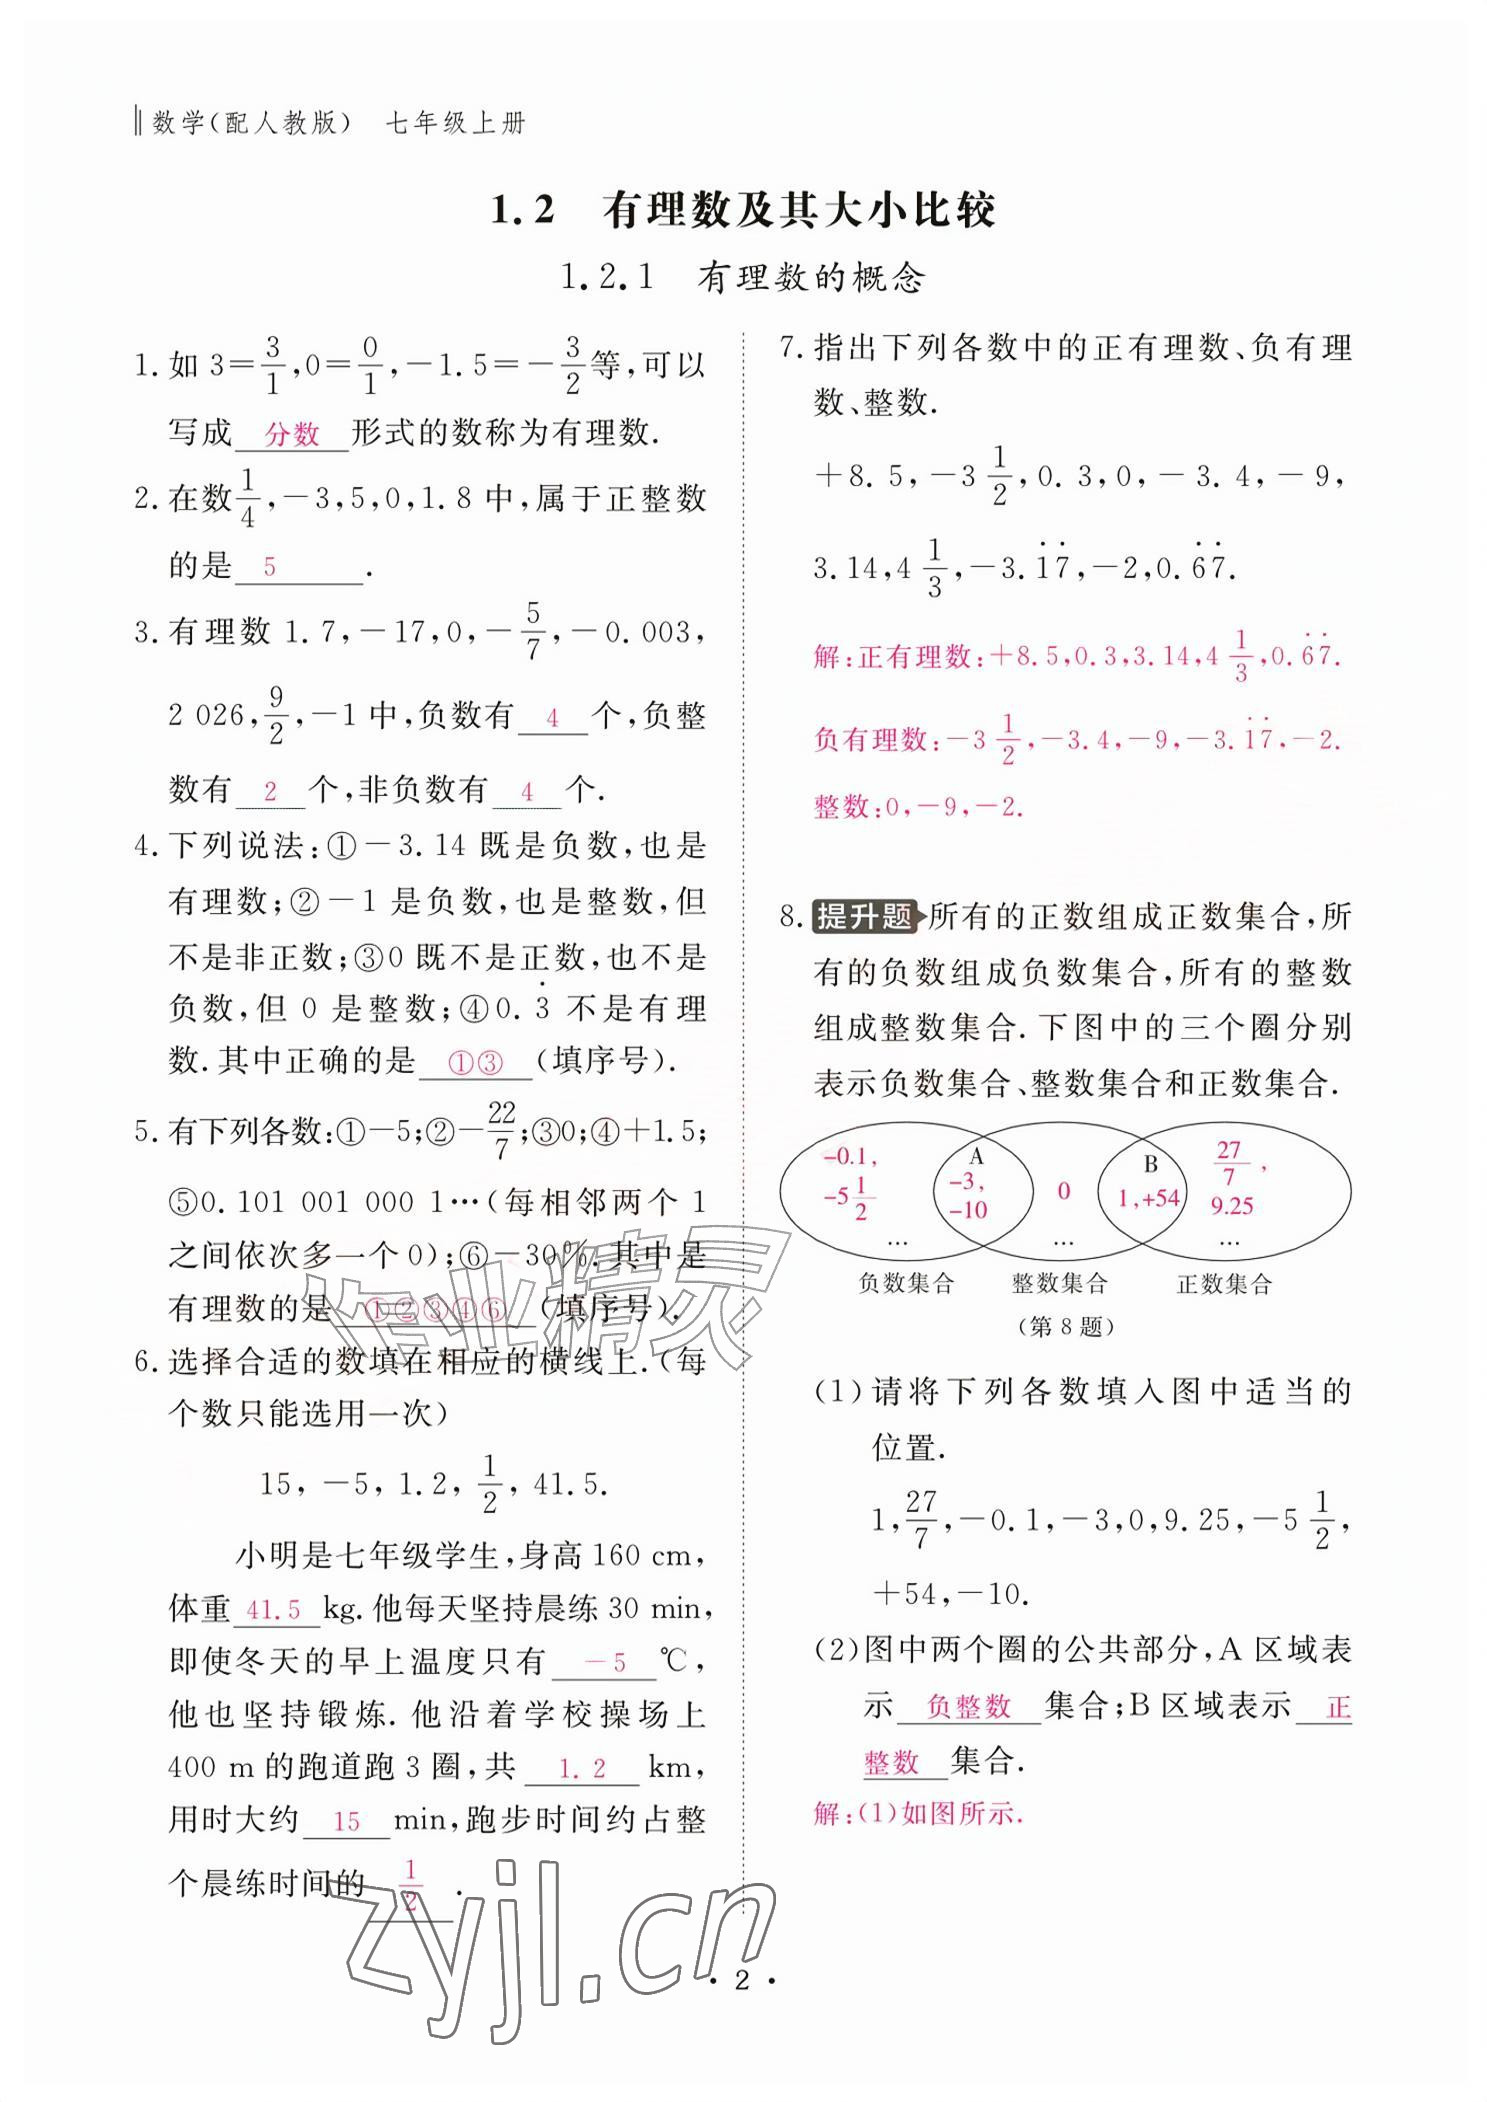 数学(配人教版) 七年级上册
1.2 有理数及其大小比较
1.2.1 有理数的概念
1. 如 3=3/1,0=0/1,-1.5=-3/2等,可以
写成 分数 形式的数称为有理数.
2. 在数1/4,-3,5,0,1.8 中,属于正整数
的是 5 .
3. 有理数 1.7,-17,0,-5/7,-0.003,
2 026,9/2,-1 中,负数有 4 个,负整
数有 2 个,非负数有 4 个.
4. 下列说法:①-3.14 既是负数,也是
有理数;②-1 是负数,也是整数,但
不是非正数;③0 既不是正数,也不是
负数,但 0 是整数;④0.3̇ 不是有理
数.其中正确的是 ①③ (填序号).
5. 有下列各数:①-5;②-22/7;③0;④+1.5;
⑤0.101 001 000 1…(每相邻两个 1
之间依次多一个 0);⑥-30%.其中是
有理数的是 ①②③④⑥ (填序号).
6. 选择合适的数填在相应的横线上.(每
个数只能选用一次)
15, -5, 1.2, 1/2, 41.5.
小明是七年级学生,身高 160 cm,
体重 41.5 kg.他每天坚持晨练 30 min,
即使冬天的早上温度只有 -5 ℃,
他也坚持锻炼.他沿着学校操场上
400 m 的跑道跑 3 圈,共 1.2 km,
用时大约 15 min,跑步时间约占整
个晨练时间的 1/2 .
7. 指出下列各数中的正有理数、负有理
数、整数.
+8.5,-3 1/2,0.3,0,-3.4,-9,
3.14,4 1/3,-3.1̇7̇,-2,0.6̇7̇.
解:正有理数:+8.5,0.3,3.14,4 1/3,0.6̇7̇.
负有理数:-3 1/2,-3.4,-9,-3.1̇7̇,-2.
整数:0,-9,-2.
8. 提升题 所有的正数组成正数集合,所
有的负数组成负数集合,所有的整数
组成整数集合.下图中的三个圈分别
表示负数集合、整数集合和正数集合.
-0.1, A B 27/7,
-5 1/2 -3, -10 0 1,+54 9.25
… … …
负数集合 整数集合 正数集合
(第 8 题)
(1)请将下列各数填入图中适当的
位置.
1,27/7,-0.1,-3,0,9.25,-5 1/2,
+54,-10.
(2)图中两个圈的公共部分,A 区域表
示 负整数 集合;B 区域表示 正
整数 集合.
解:(1)如图所示.
作业精灵
zyjl.cn
· 2 ·